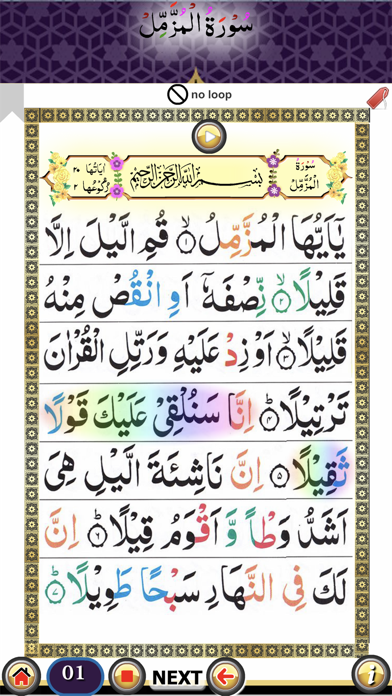 سُوْرَةُ الْمُزَّمِّلْ
no loop
سُوْرَةُ الْمُزَّمِّلْ
بِسْمِ اللّٰهِ الرَّحْمٰنِ الرَّحِيْمِ
اٰيَاتُهَا ٢٠
رُكُوْعُهَا ٢
يٰۤاَيُّهَا الْمُزَّمِّلُۙ ۱ قُمِ الَّيْلَ اِلَّا
قَلِيْلًاۙ ۲ نِّصْفَهٗۤ اَوِ انْقُصْ مِنْهُ
قَلِيْلًاۙ ۳ اَوْ زِدْ عَلَيْهِ وَرَتِّلِ الْقُرْاٰنَ
تَرْتِيْلًاؕ ۴ اِنَّا سَنُلْقِيْ عَلَيْكَ قَوْلًا
ثَقِيْلًا ۵ اِنَّ نَاشِئَةَ الَّيْلِ هِيَ
اَشَدُّ وَطْاً وَّ اَقْوَمُ قِيْلًاؕ ۶ اِنَّ
لَكَ فِي النَّهَارِ سَبْحًا طَوِيْلًاؕ ۷
01
NEXT
i